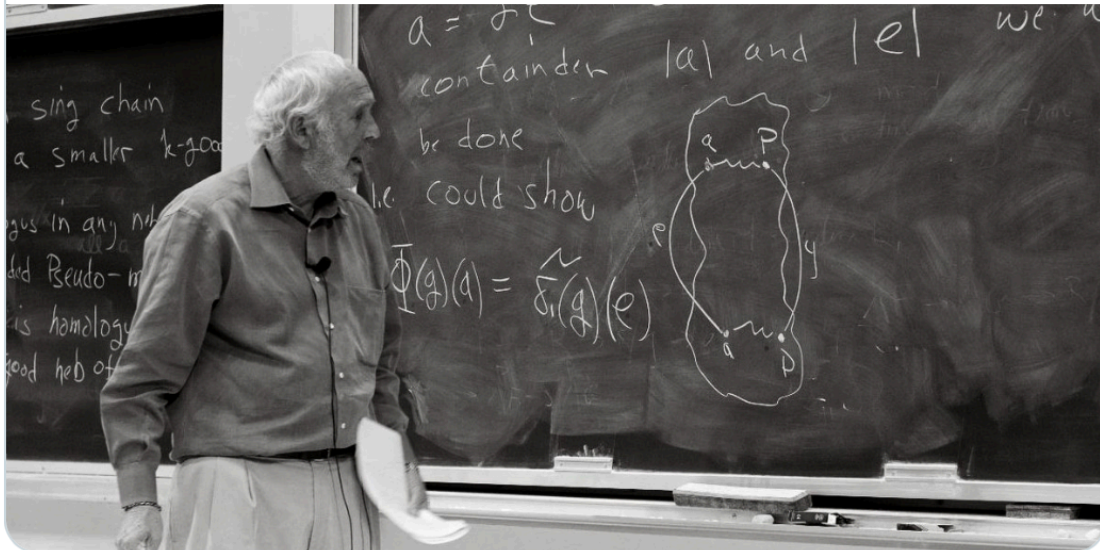 sing chain
a smaller k-good
in any
Pseudo-
is homology
good neb of
a =
containder |a| and |e| we
be done
i.e. could show
Φ(g)(a) = δ̃₁(g)(e)
a P
e y
a P